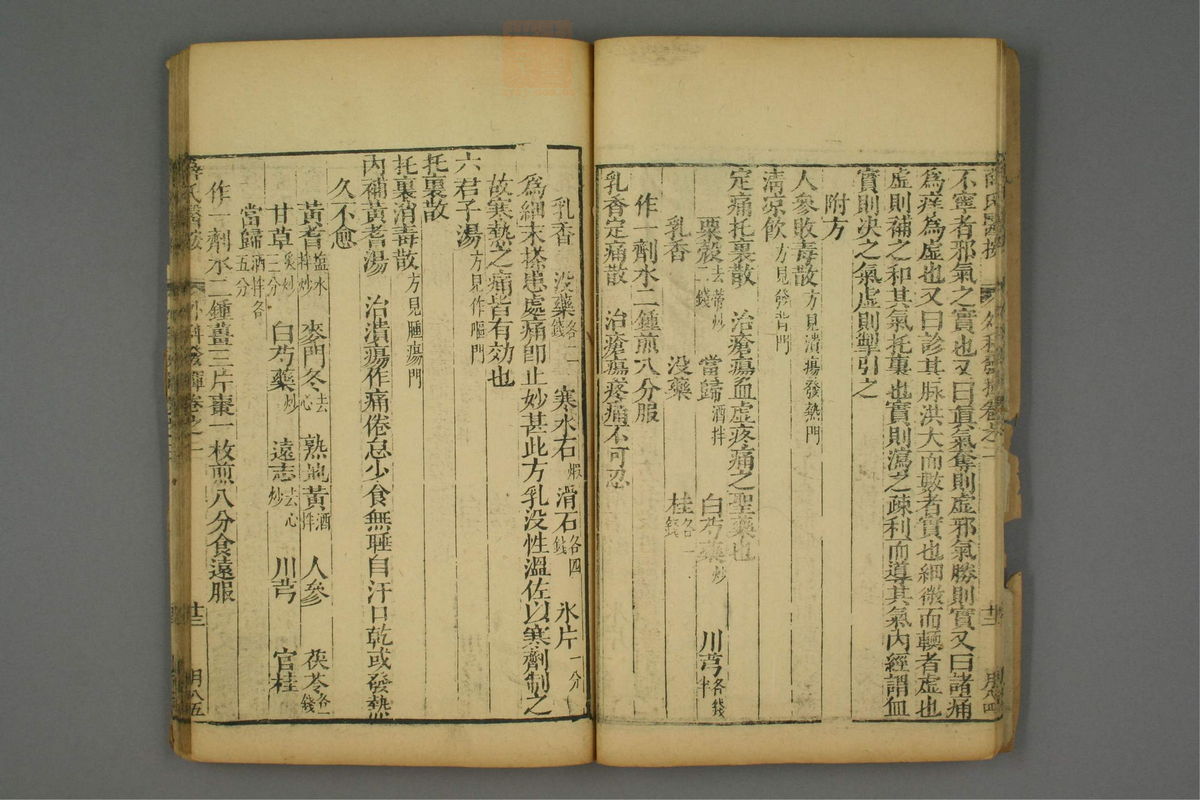 不寧者邪氣之實也又曰眞氣奪則虛邪氣勝則實又曰諸痛
爲痒爲虛也又曰診其脉洪大而數者實也細微而軟者虛也
虛則補之和其氣托裏也實則瀉之疎利而導其氣內經謂血
實則決之氣虛則掣引之
附方
人參敗毒散 方見潰瘍發熱門
清凉飲 方見發背門
定痛托裏散 治瘡瘍血虛疼痛之聖藥也
粟殼 去蒂炒二錢 當歸 酒拌 白芍藥 炒 川芎 各錢半
乳香 沒藥 桂 各一錢
作一劑水二鍾煎八分服
乳香定痛散 治瘡瘍疼痛不可忍
乳香 沒藥 各二錢 寒水石 煆 滑石 各四錢 氷片 一分
爲細末搽患處痛即止妙甚此方乳沒性溫佐以寒劑制之
故寒熱之痛皆有効也
六君子湯 方見作嘔門
托裏散
托裏消毒散 方見腫瘍門
內補黃耆湯 治潰瘍作痛倦怠少食無睡自汗口乾或發熱
久不愈
黃耆 鹽水拌炒 麥門冬 去心 熟地黃 酒拌 人參 茯苓 各一錢
甘草 炙炒三分 白芍藥 炒 遠志 去心炒 川芎 官桂
當歸 酒拌各五分
作一劑水二鍾薑三片棗一枚煎八分食遠服
薛氏醫按 外科發揮卷之二 廿三 明八五